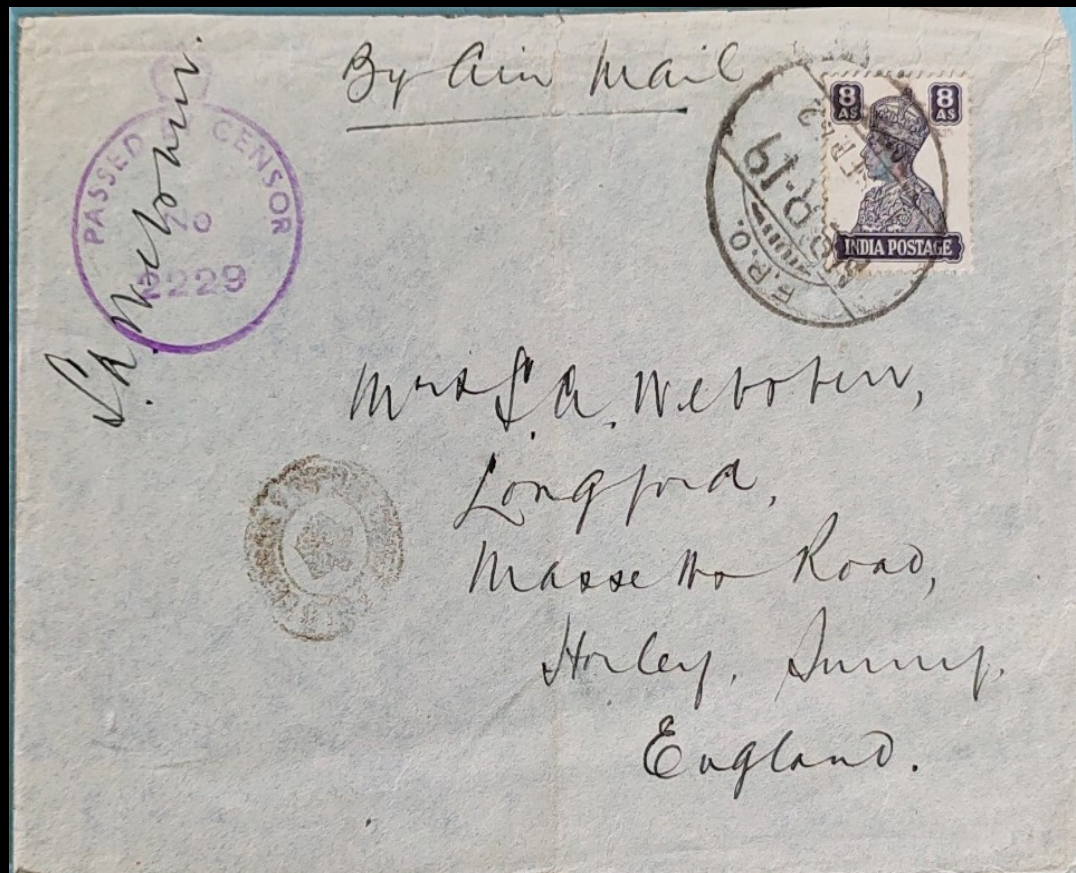 By Air Mail
PASSED BY CENSOR
2229
8 AS 8 AS
INDIA POSTAGE
F.P.O.
Mrs S. A. Webster,
Longford,
Massetts Road,
Horley, Surrey.
England.